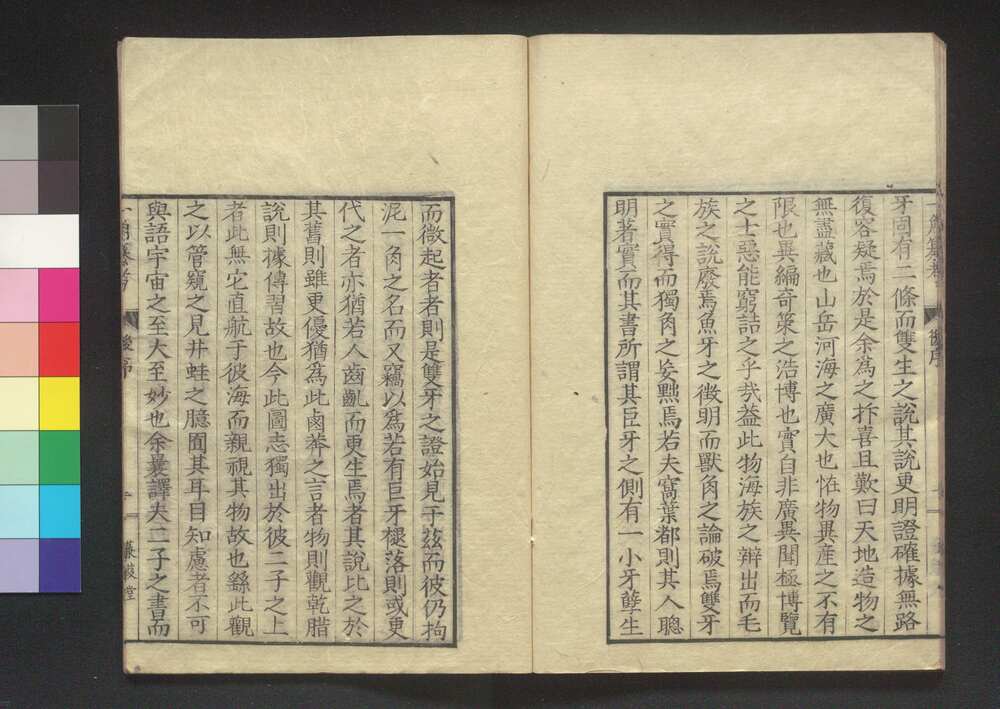 牙同有二條而雙生之說其說更明證確據無路
復容疑焉於是余爲之抃喜且歎曰天地造物之
無盡藏也山岳河海之廣大也恠物異産之不有
限也異編奇策之浩博也實自非廣異聞極博覽
之士惡能窮詰之乎哉益此物海族之辯出而毛
族之說廢焉魚牙之徴明而獸角之論破焉雙牙
之實得而獨角之妄黜焉若夫窩葉都則其人聰
明著實而其書所謂其巨牙之側有一小牙孽生
而微起者者則是雙牙之證始見于茲而彼仍拘
泥一角之名而又竊以爲若有巨牙褪落則或更
代之者亦猶若人齒齔而更生焉者其說比之於
其舊則雖更優猶爲此鹵莽之言者物則觀乾腊
說則據傳習故也今此圖志獨出於彼二子之上
者此無它直航于彼海而親視其物故也繇此觀
之以管窺之見井蛙之臆囿其耳目知慮者不可
與語宇宙之至大至妙也余曩譯夫二子之書而
後序
蒹葭堂